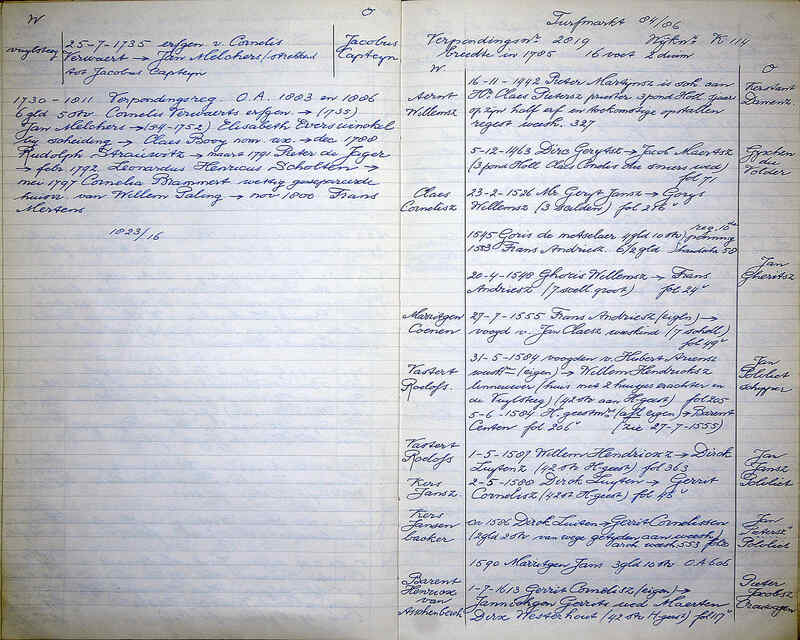 W O
Vuylsteeg 25-7-1735 erfgen v. Cornelis Jacobus
Verwaert → Jan Melchers/strekked Capteyn
tot Jacobus Capteyn
1730 - 1811 Verpondingsreg. O.A. 1883 en 1886
6 gld 50 str Cornelis Verwaerts erfgen → (1735)
Jan Melchers → (54-752) Elisabeth Everswinckel
bij scheiding → Claes Booy nom. ux. → dec 1788
Rudolph Strauwitz → maart 1791 Pieter de Jager
→ febr 1792 Leonardus Henricus Scholten →
mei 1797 Cornelia Brammert wettig gesepareerde
huisvr van Willem Paling → nov 1800 Frans
Mertens
1823/16
Turfmarkt 84/86
Verpondingsnr. 2819 Wijknr. K 114
breedte in 1785 16 voet 2 duim
W O
Aernt
Willemsz
16-11-1442 Pieter Martijnsz is sch. aan
Hr. Claes Pietersz priester 3 pond Holl. sjaers
op zijn half erf en toekomstige opstallen
regest weesh. 327
Kerstant
Damensz.
5-12-1463 Dirc Gorytsz → Jacob Maertsz
(3 pond Holl. Claes Condis die smersneed)
fol 71
Gypchen
die
Volder
Claes
Cornelisz
23-2-1526 Mr. Goryt Jansz → Gorys
Willemsz (3 scellden) fol 276v
1545 Goris de metselaer 4 gld 10 str reg. 10de penning
1553 Frans Andriesz. 6 1/2 gld
20-4-1548 Ghoris Willemsz → Frans
Andriesz (7 scell. groot) fol 24v
Jan
Gheritsz
Marritgen
Coenen
27-7-1555 Frans Andriesz (eigen) →
voogd v. Jan Claesz weeskind (7 schell)
fol 49v
Vastert
Roelofs.
31-5-1584 voogden v. Hubert Ariensz
weesk. (eigen) → Willem Hendricksz
linnenwever (huis met 2 huisjes erachter in
de Vuylsteeg) (42 str aan H. geest) fol 205
5-6-1584 H. geestmrs. (afl. eigen) → Barent
Centen fol 206v (zie 27-7-1555)
Jan
Pololiet
schipper
Vastert
Roelofs
1-5-1587 Willem Hendricxz → Dirck
Luytenz (42 str H. geest) fol 363
Jan
Jansz
Pololiet
Kers
Jansz.
2-5-1588 Dirck Luyten → Gerrit
Cornelisz (42 st H. geest) fol 45v
Kers
Jansen
backer
ca 1586 Dirck Luiten → Gerrit Cornelissen
(2 gld 2 str van wege getyden aan weesh)
arch. weesh 553 fol
Jan
Pietersz
Pololiet
1590 Marritgen Jans 3 gld 10 str O.A 606
Barent
Henricxz
van
Asschenberch
1-7-1613 Gerrit Cornelisz (eigen) →
Jannetchgen Gerrits wed Maerten
Dircx Westerhout (42 str H. geest) fol 117v
Pieter
Jacobsz